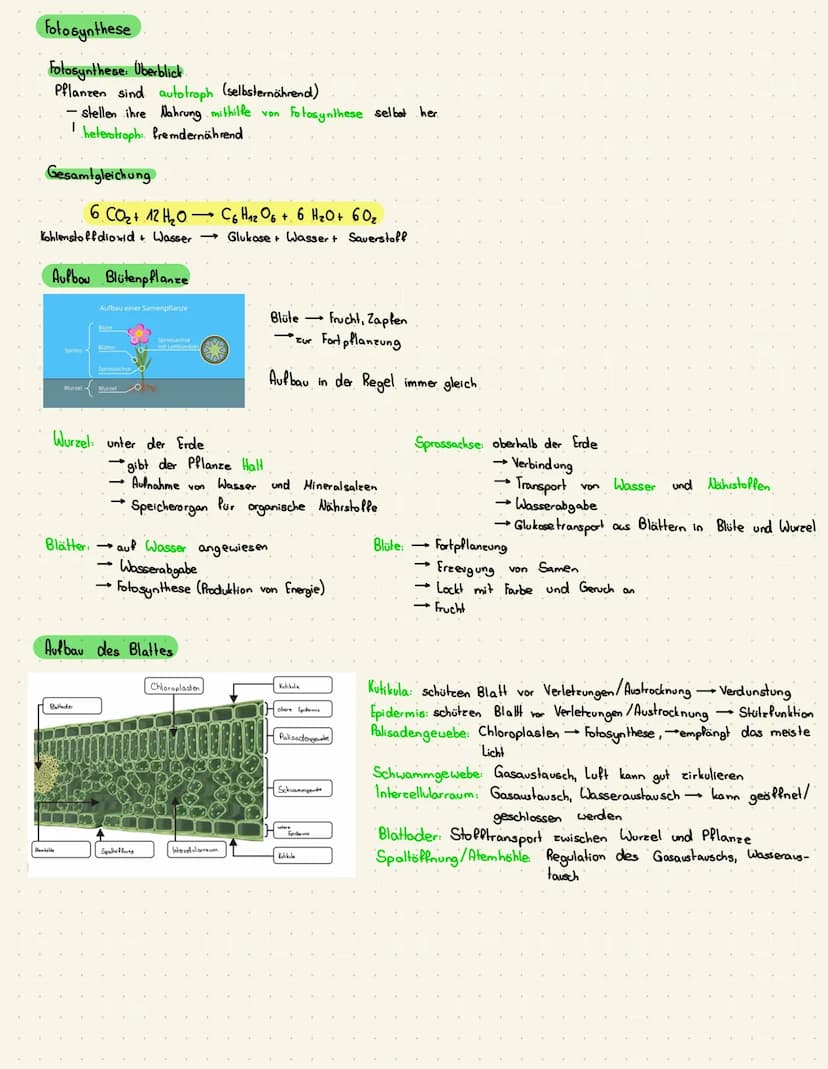 Fotosynthese
Fotosynthese: Überblick
Pflanzen sind autotroph (selbsternährend)
– stellen ihre Nahrung mithilfe von Fotosynthese selbst her
heterotroph: fremdernährend
Gesamtgleichung
6 CO₂ + 12 H₂O → C₆H₁₂O₆ + 6 H₂O + 6 O₂
Kohlenstoffdioxid + Wasser → Glukose + Wasser + Sauerstoff
Aufbau Blütenpflanze
Aufbau einer Samenpflanze
Blüte
Blätter
Sprossachse mit Leitbündeln
Spross
Sprossachse
Wurzel
Wurzel
Blüte → Frucht, Zapfen
→ zur Fortpflanzung
Aufbau in der Regel immer gleich
Wurzel: unter der Erde
→ gibt der Pflanze Halt
→ Aufnahme von Wasser und Mineralsalzen
→ Speicherorgan für organische Nährstoffe
Sprossachse: oberhalb der Erde
→ Verbindung
→ Transport von Wasser und Nährstoffen
→ Wasserabgabe
→ Glukosetransport aus Blättern in Blüte und Wurzel
Blätter: → auf Wasser angewiesen
→ Wasserabgabe
→ Fotosynthese (Produktion von Energie)
Blüte: → Fortpflanzung
→ Erzeugung von Samen
→ Lockt mit Farbe und Geruch an
→ Frucht
Aufbau des Blattes
Chloroplasten
Kutikula
Blattader
obere Epidermis
Palisadengewebe
Schwammgewebe
untere Epidermis
Atemhöhle
Spaltöffnung
Interzellularraum
Kutikula
Kutikula: schützen Blatt vor Verletzungen/Austrocknung → Verdunstung
Epidermis: schützen Blatt vor Verletzungen/Austrocknung → Stützfunktion
Palisadengewebe: Chloroplasten → Fotosynthese, → empfängt das meiste
Licht
Schwammgewebe: Gasaustausch, Luft kann gut zirkulieren
Intercellularraum: Gasaustausch, Wasseraustausch → kann geöffnet/
geschlossen werden
Blattader: Stofftransport zwischen Wurzel und Pflanze
Spaltöffnung/Atemhöhle: Regulation des Gasaustauschs, Wasseraus-
tausch